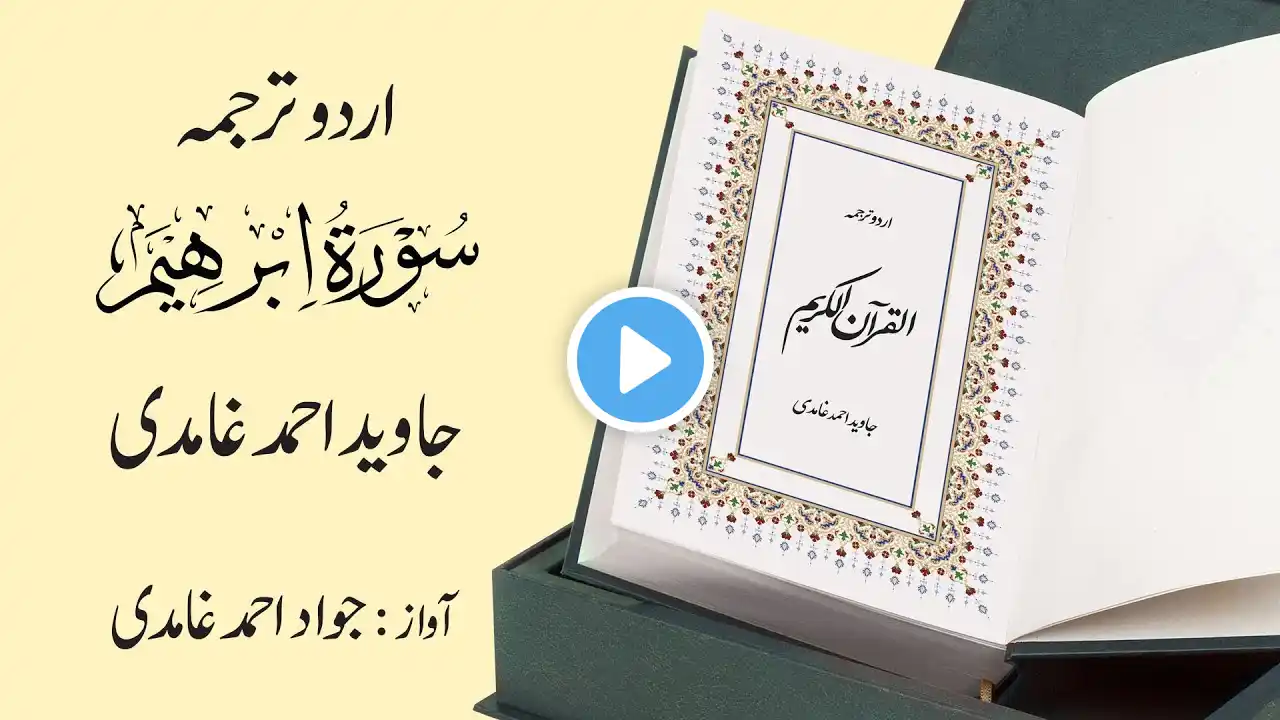 اردو ترجمہ
سُوْرَۃُ اِبْرٰهِیْمَ
جاوید احمد غامدی
آواز : جواد احمد غامدی
اردو ترجمہ
القرآن الکریم
جاوید احمد غامدی